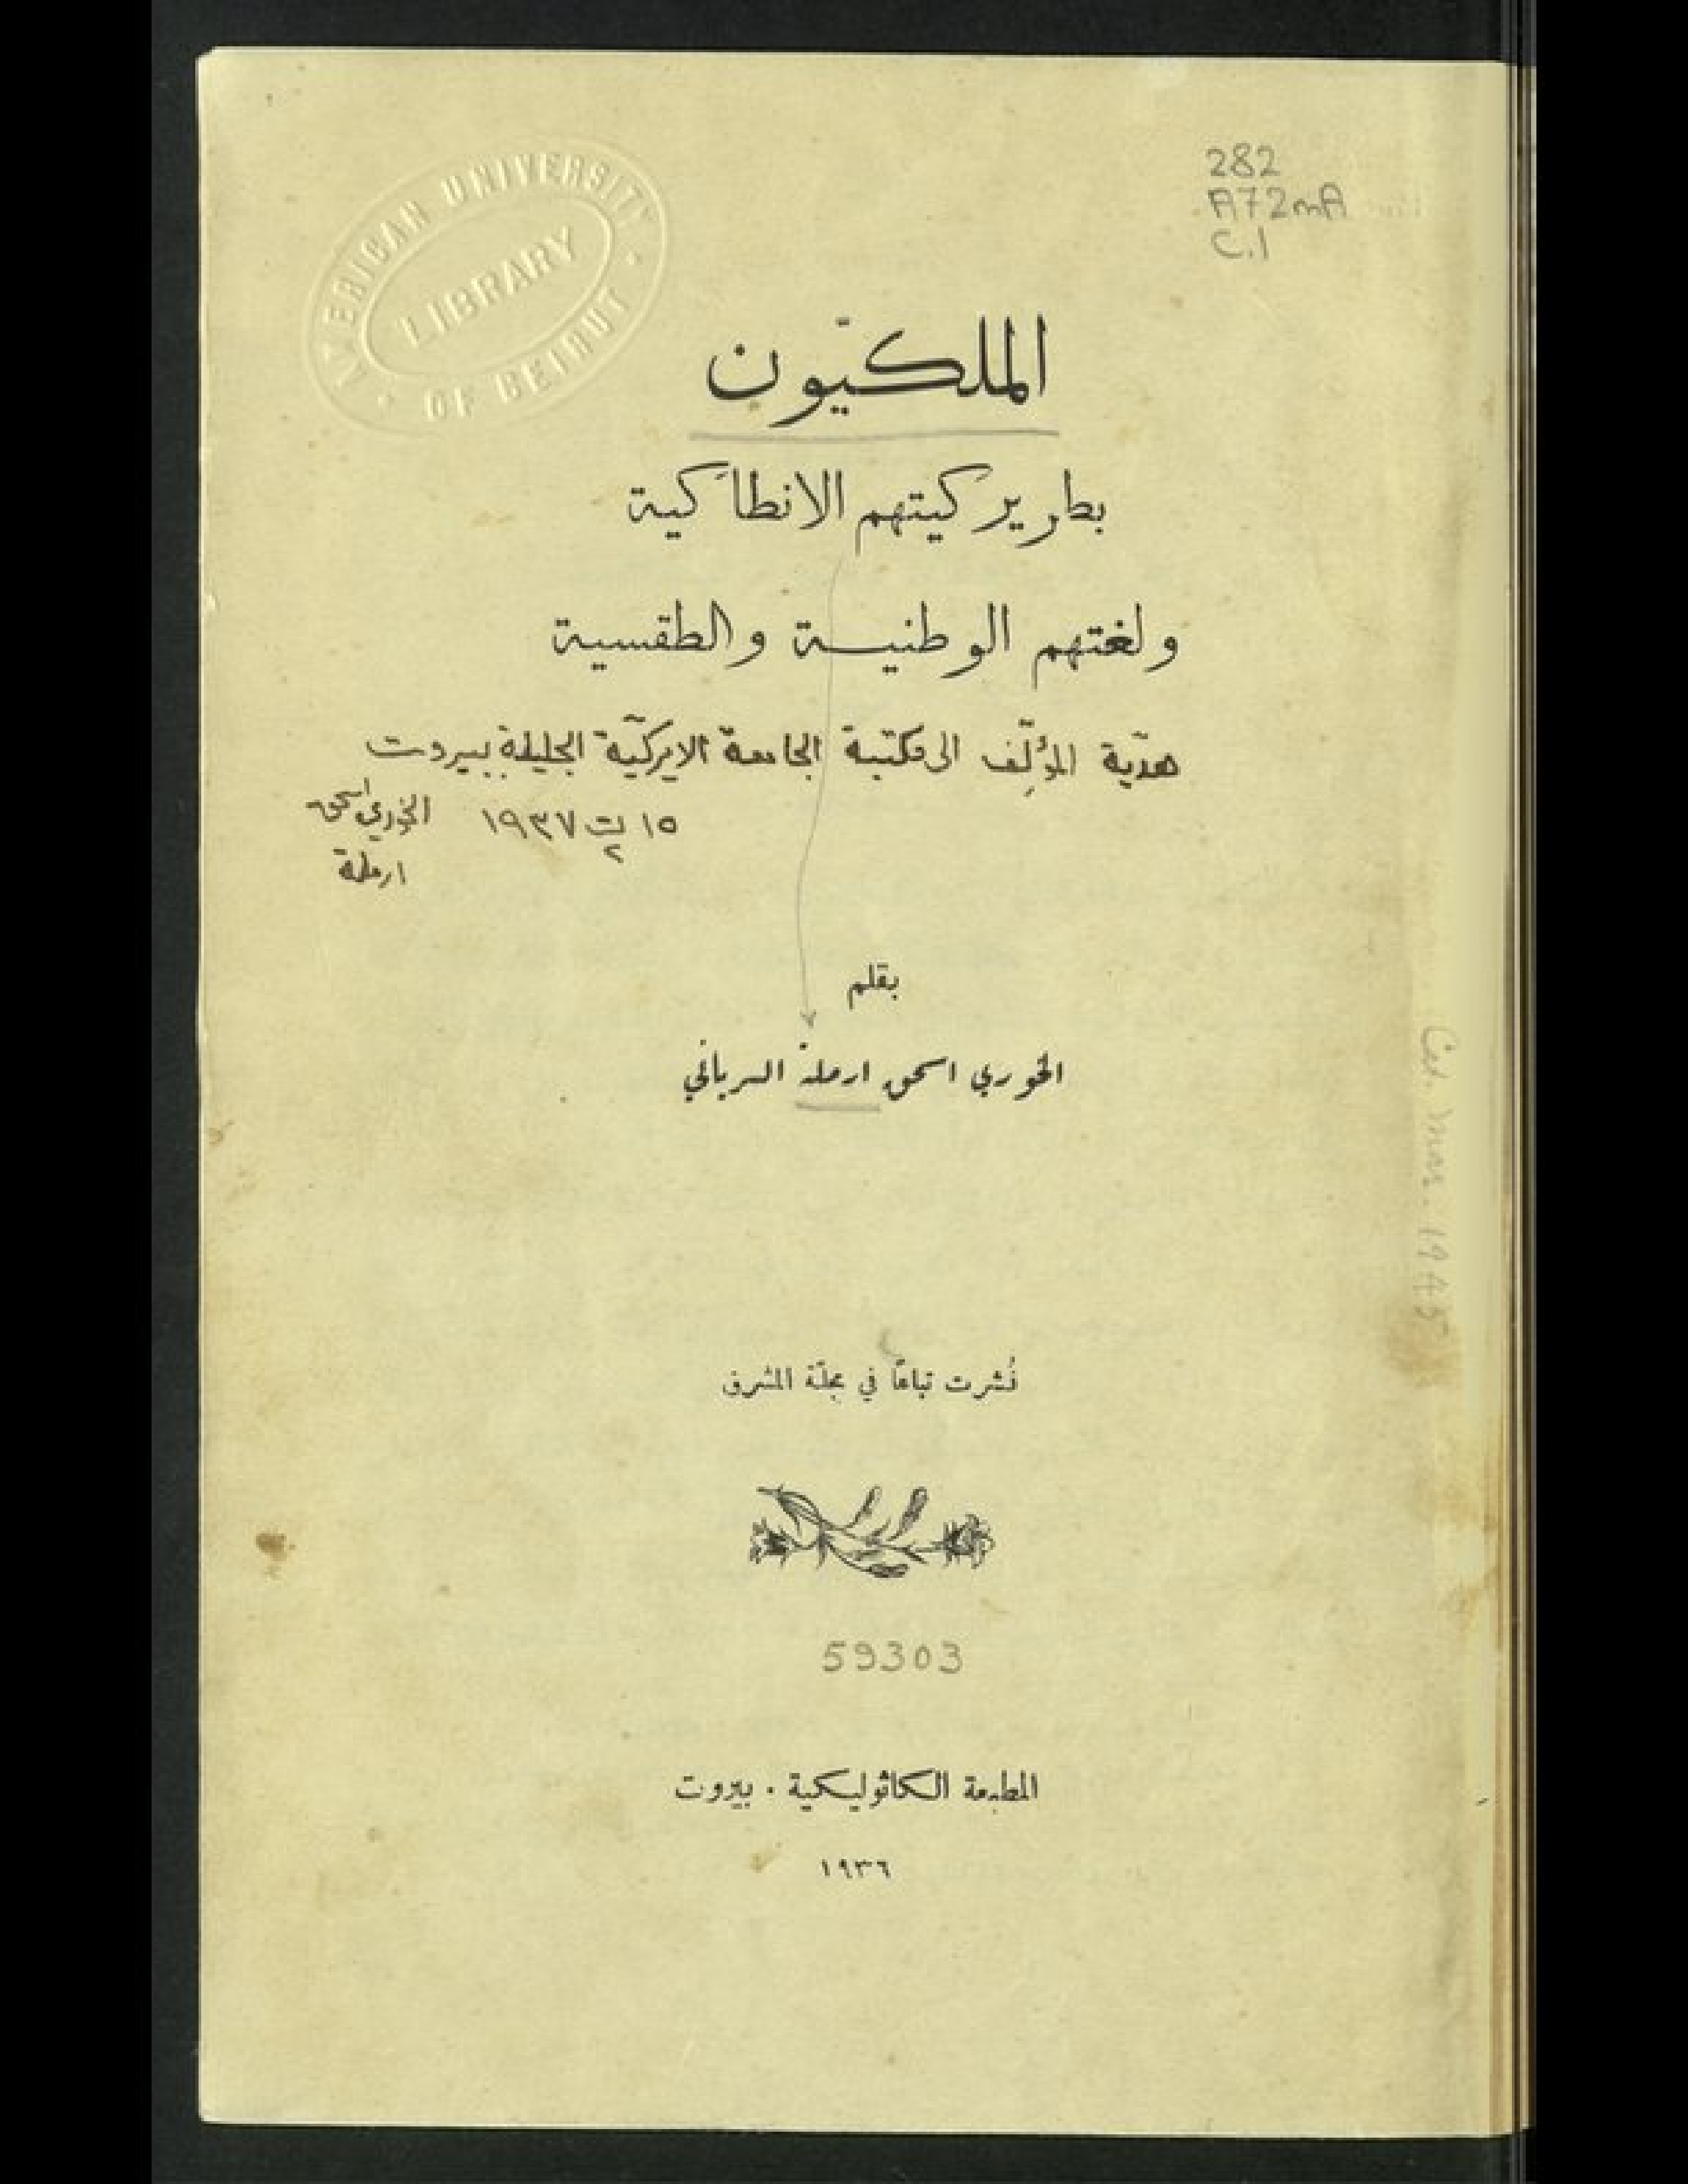 AMERICAN UNIVERSITY
LIBRARY
OF BEIRUT
282
A72mA
C.1
الملكيّون
بطريركيتهم الانطاكية
ولغتهم الوطنيـة والطقسية
هديّة المؤلِّف الى مكتبة الجامعة الاميركيّة الجليلة ببيروت
١٥ ت٢ ١٩٣٧ الخوري اسحق
ارملة
بقلم
الخوري اسحق ارملة السرياني
Cat. Mar. 1945
نُشرت تباعًا في مجلّة المشرق
59303
المطبعة الكاثوليكية . بيروت
١٩٣٦